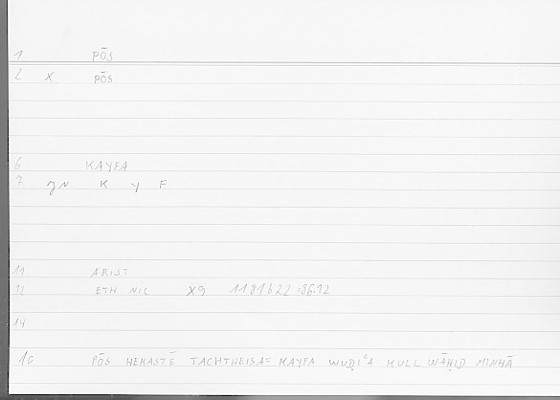 1 PŌS
2 X PŌS
6 KAYFA
7 gN K Y F
11 ARIST
12 ETH NIC X9 1181b22:86.12
14
16 PŌS HEKASTĒ TACHTHEISA= KAYFA WUḌIʿA KULL WĀḤID MINHĀ